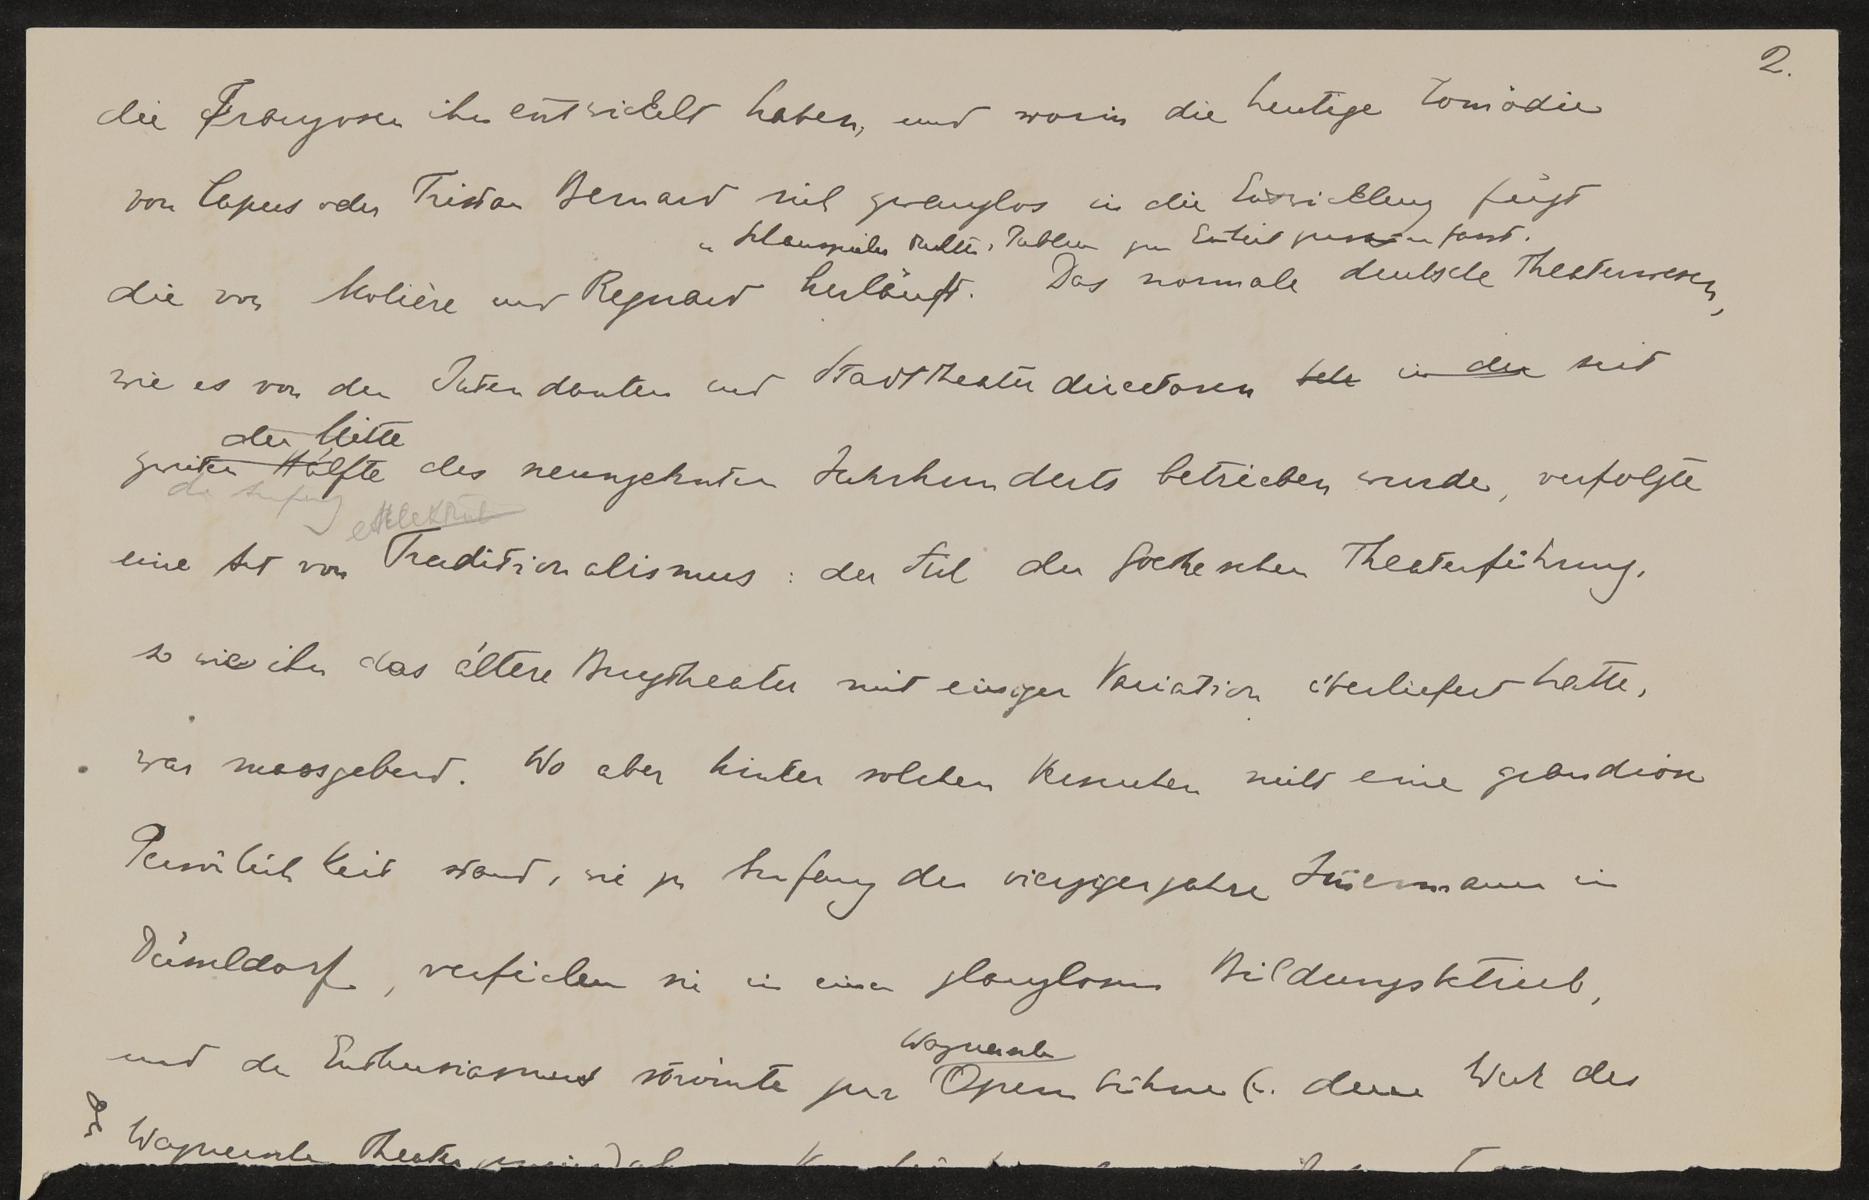 2.
die Franzosen ihn entwickelt haben, und worin die heutige Comödie
von Capus oder Tristan Bernard sich zwanglos in die Entwicklung fügt
u Schauspieler Dichter, Publicum zur Einheit zusammenfasst.
die von Molière und Regnard herläuft. Das normale deutsche Theaterwesen,
wie es von den Intendanten und Stadttheaterdirectoren in der seit
der Mitte
zweiten Hälfte des neunzehnten Jahrhunderts betrieben wurde, verfolgte
der Anfang
eine Art von Traditionalismus: der Stil der Goetheschen Theaterführung,
so wie ihn das ältere Burgtheater mit einiger Variation überliefert hatte,
war massgebend. Wo aber hinter solchen Versuchen nicht eine grandiose
Persönlichkeit stand, wie zu Anfang der vierzigerjahre Immermann in
Düsseldorf, verfielen sie in einen glanzlosen Bildungsbetrieb,
Wagnersche
und der Enthusiasmus strömte zur Opernbühne (. denn Werk des
Wagnersche Theater